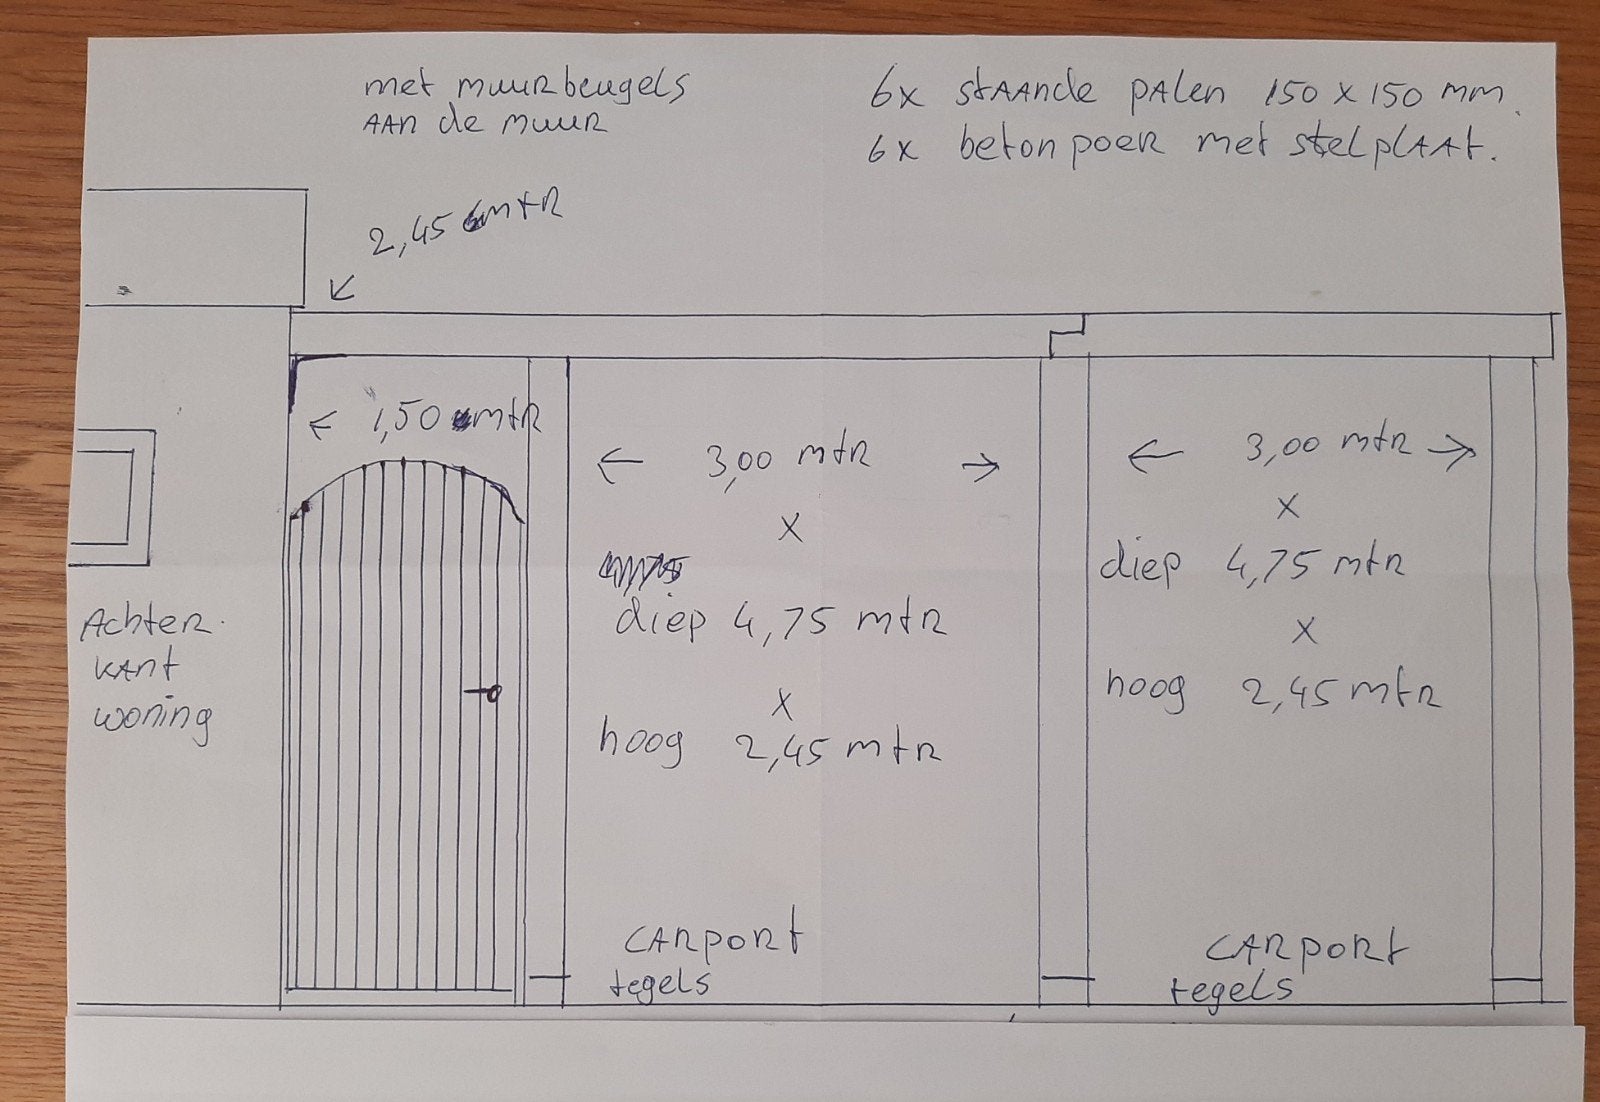 met muurbeugels
AAN de muur
6x stAAnde pAlen 150 x 150 mm.
6x beton poer met stelplAAt.
2,45 mtR
1,50 mtR
3,00 mtR
x
diep 4,75 mtR
x
hoog 2,45 mtR
CARpoRt
tegels
3,00 mtR
x
diep 4,75 mtR
x
hoog 2,45 mtR
CARpoRt
tegels
AchteR
kAnt
woning